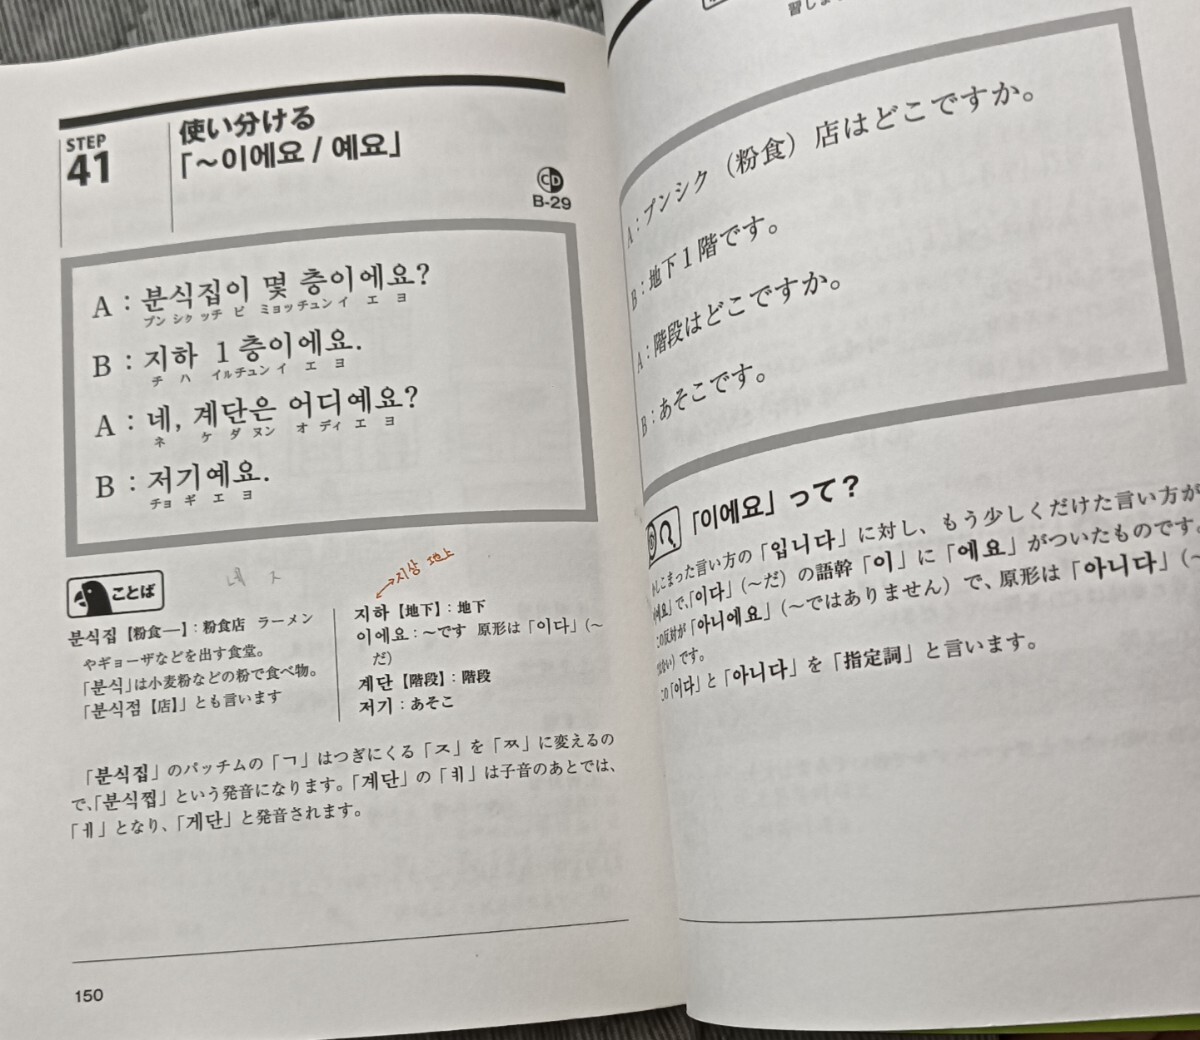 STEP
41
使い分ける
「～이에요 / 예요」
CD
B-29
A：분식집이 몇 층이에요?
プン シク ッチ ビ ミョッチュン イ エ ヨ
B：지하 1층이에요.
チ ハ イルチュン イ エ ヨ
A：네, 계단은 어디예요?
ネ ケ ダ ヌン オ ディ エ ヨ
B：저기예요.
チョ ギ エ ヨ
ことば
분식집【粉食―】：粉食店 ラーメン
やギョーザなどを出す食堂。
「분식」は小麦粉などの粉で食べ物。
「분식점【店】」とも言います
지상 地上
지하【地下】：地下
이에요：～です 原形は「이다」(～
だ)
계단【階段】：階段
저기：あそこ
「분식집」のパッチムの「ㄱ」はつぎにくる「ㅈ」を「ㅉ」に変えるの
で、「분식찝」という発音になります。「계단」の「ㅖ」は子音のあとでは、
「ㅔ」となり、「게단」と発音されます。
150
習しま
A：プンシク（粉食）店はどこですか。
B：地下1階です。
A：階段はどこですか。
B：あそこです。
「이에요」って？
しこまった言い方の「입니다」に対し、もう少しくだけた言い方が
で、「이다」(～だ）の語幹「이」に「에요」がついたものです。
この反対が「아니에요」(～ではありません）で、原形は「아니다」(～
ない）です。
この「이다」と「아니다」を「指定詞」と言います。